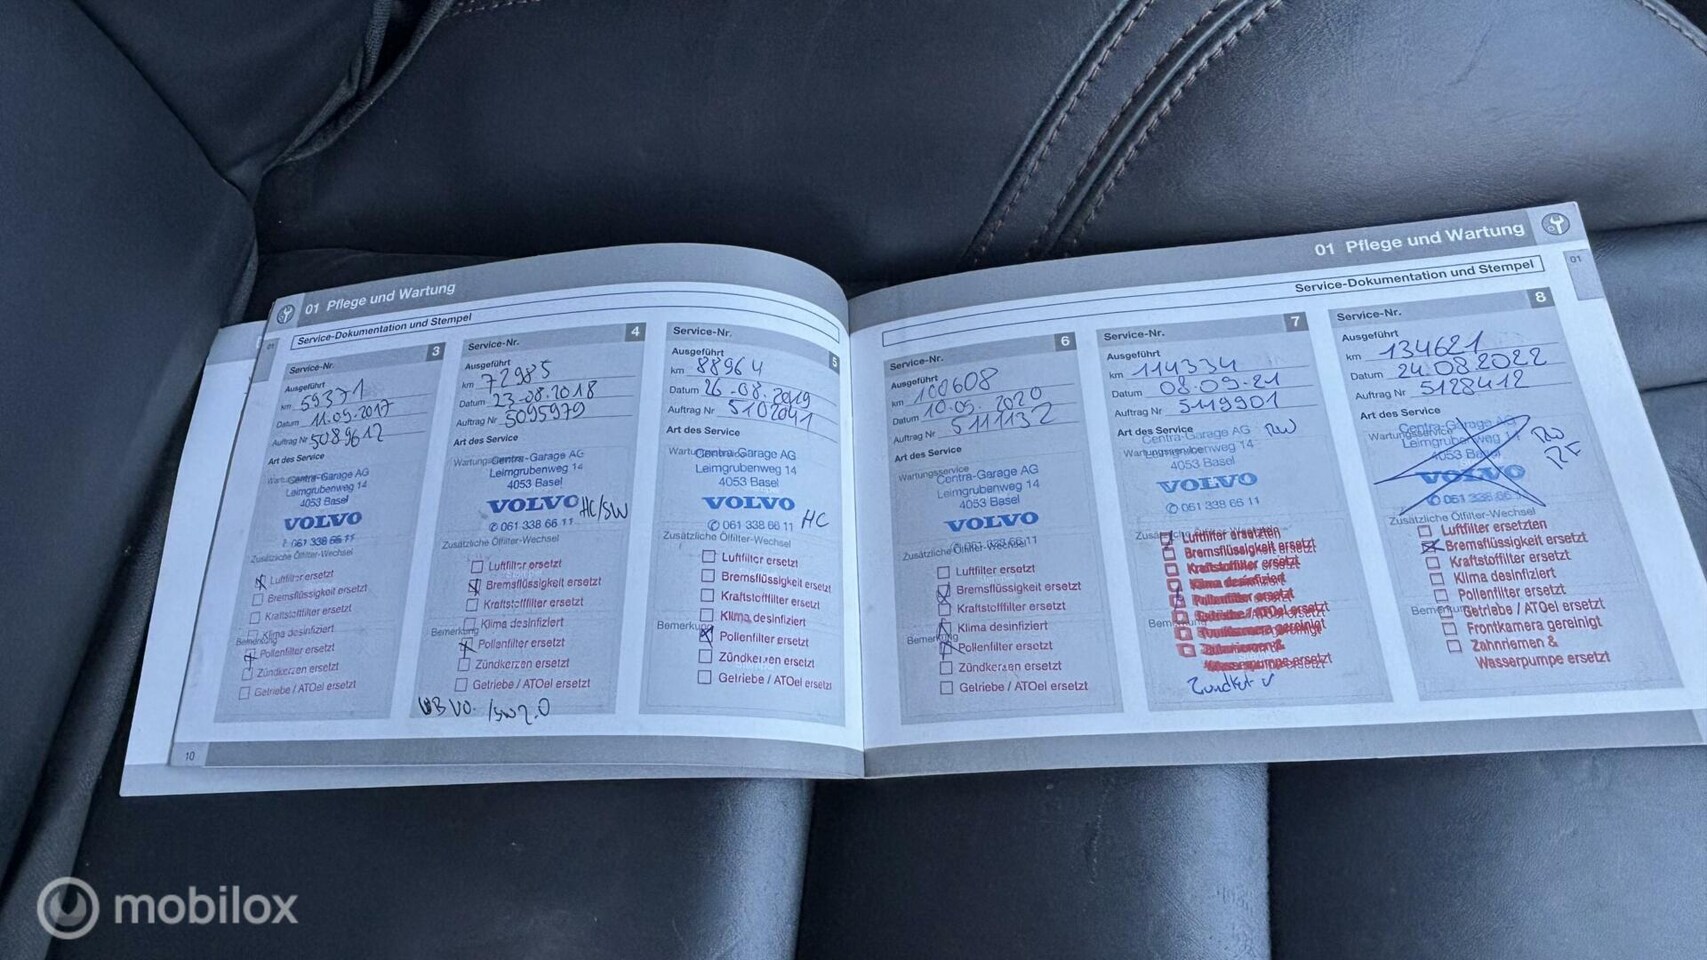 01 Pflege und Wartung
Service-Dokumentation und Stempel
Service-Nr. 3
Ausgeführt
km 59371
Datum 11.09.2017
Auftrag Nr 5089612
Art des Service
Wartungsservice
Centra-Garage AG
Leimgrubenweg 14
4053 Basel
VOLVO
061 338 66 11
Zusätzliche Ölfilter-Wechsel
Luftfilter ersetzt
Bremsflüssigkeit ersetzt
Kraftstoffilter ersetzt
Klima desinfiziert
Bemerkung
Pollenfilter ersetzt
Zündkerzen ersetzt
Getriebe / ATOel ersetzt
10
Service-Nr. 4
Ausgeführt
km 72985
Datum 23.08.2018
Auftrag Nr 5095979
Art des Service
Centra-Garage AG
Leimgrubenweg 14
4053 Basel
VOLVO HC/SW
✆ 061 338 66 11
Zusätzliche Ölfilter-Wechsel
Luftfilter ersetzt
Bremsflüssigkeit ersetzt
Kraftstofffilter ersetzt
Klima desinfiziert
Bemerkung
Pollenfilter ersetzt
Zündkerzen ersetzt
Getriebe / ATOel ersetzt
Service-Nr. 5
Ausgeführt
km 88964
Datum 26.08.2019
Auftrag Nr 5102041
Art des Service
Centra-Garage AG
Leimgrubenweg 14
4053 Basel
VOLVO
✆ 061 338 66 11 HC
Zusätzliche Ölfilter-Wechsel
Luftfilter ersetzt
Bremsflüssigkeit ersetzt
Kraftstoffilter ersetzt
Klima desinfiziert
Bemerkung
Pollenfilter ersetzt
Zündkerzen ersetzt
Getriebe / ATOel ersetzt
01 Pflege und Wartung
01
Service-Dokumentation und Stempel
Service-Nr. 6
Ausgeführt
km 100608
Datum 10.09.2020
Auftrag Nr 5111132
Art des Service
Wartungsservice
Centra-Garage AG
Leimgrubenweg 14
4053 Basel
VOLVO
✆ 061 338 66 11
Zusätzliche Ölfilter-Wechsel
Luftfilter ersetzt
Bremsflüssigkeit ersetzt
Kraftstoffilter ersetzt
Klima desinfiziert
Bemerkung
Pollenfilter ersetzt
Zündkerzen ersetzt
Getriebe / ATOel ersetzt
Service-Nr. 7
Ausgeführt
km 114334
Datum 08.09.21
Auftrag Nr 5119901
Art des Service
Centra-Garage AG RW
Wartungsservice
Leimgrubenweg 14
4053 Basel
VOLVO
✆ 061 338 66 11
Luftfilter ersetzten
Bremsflüssigkeit ersetzt
Kraftstoffilter ersetzt
Klima desinfiziert
Pollenfilter ersetzt
Getriebe / ATOel ersetzt
Bemerkung
Frontkamera gereinigt
Zahnriemen &
Wasserpumpe ersetzt
Service-Nr. 8
Ausgeführt
km 134621
Datum 24.08.2022
Auftrag Nr 5128412
Art des Service
Wartungsservice
Centra-Garage AG
Leimgrubenweg 14
4053 Basel
RW
RF
VOLVO
✆ 061 338 66 11
Zusätzliche Ölfilter-Wechsel
Luftfilter ersetzten
Bremsflüssigkeit ersetzt
Kraftstoffilter ersetzt
Klima desinfiziert
Pollenfilter ersetzt
Bemerkung
Getriebe / ATOel ersetzt
Frontkamera gereinigt
Zahnriemen &
Wasserpumpe ersetzt
mobilox